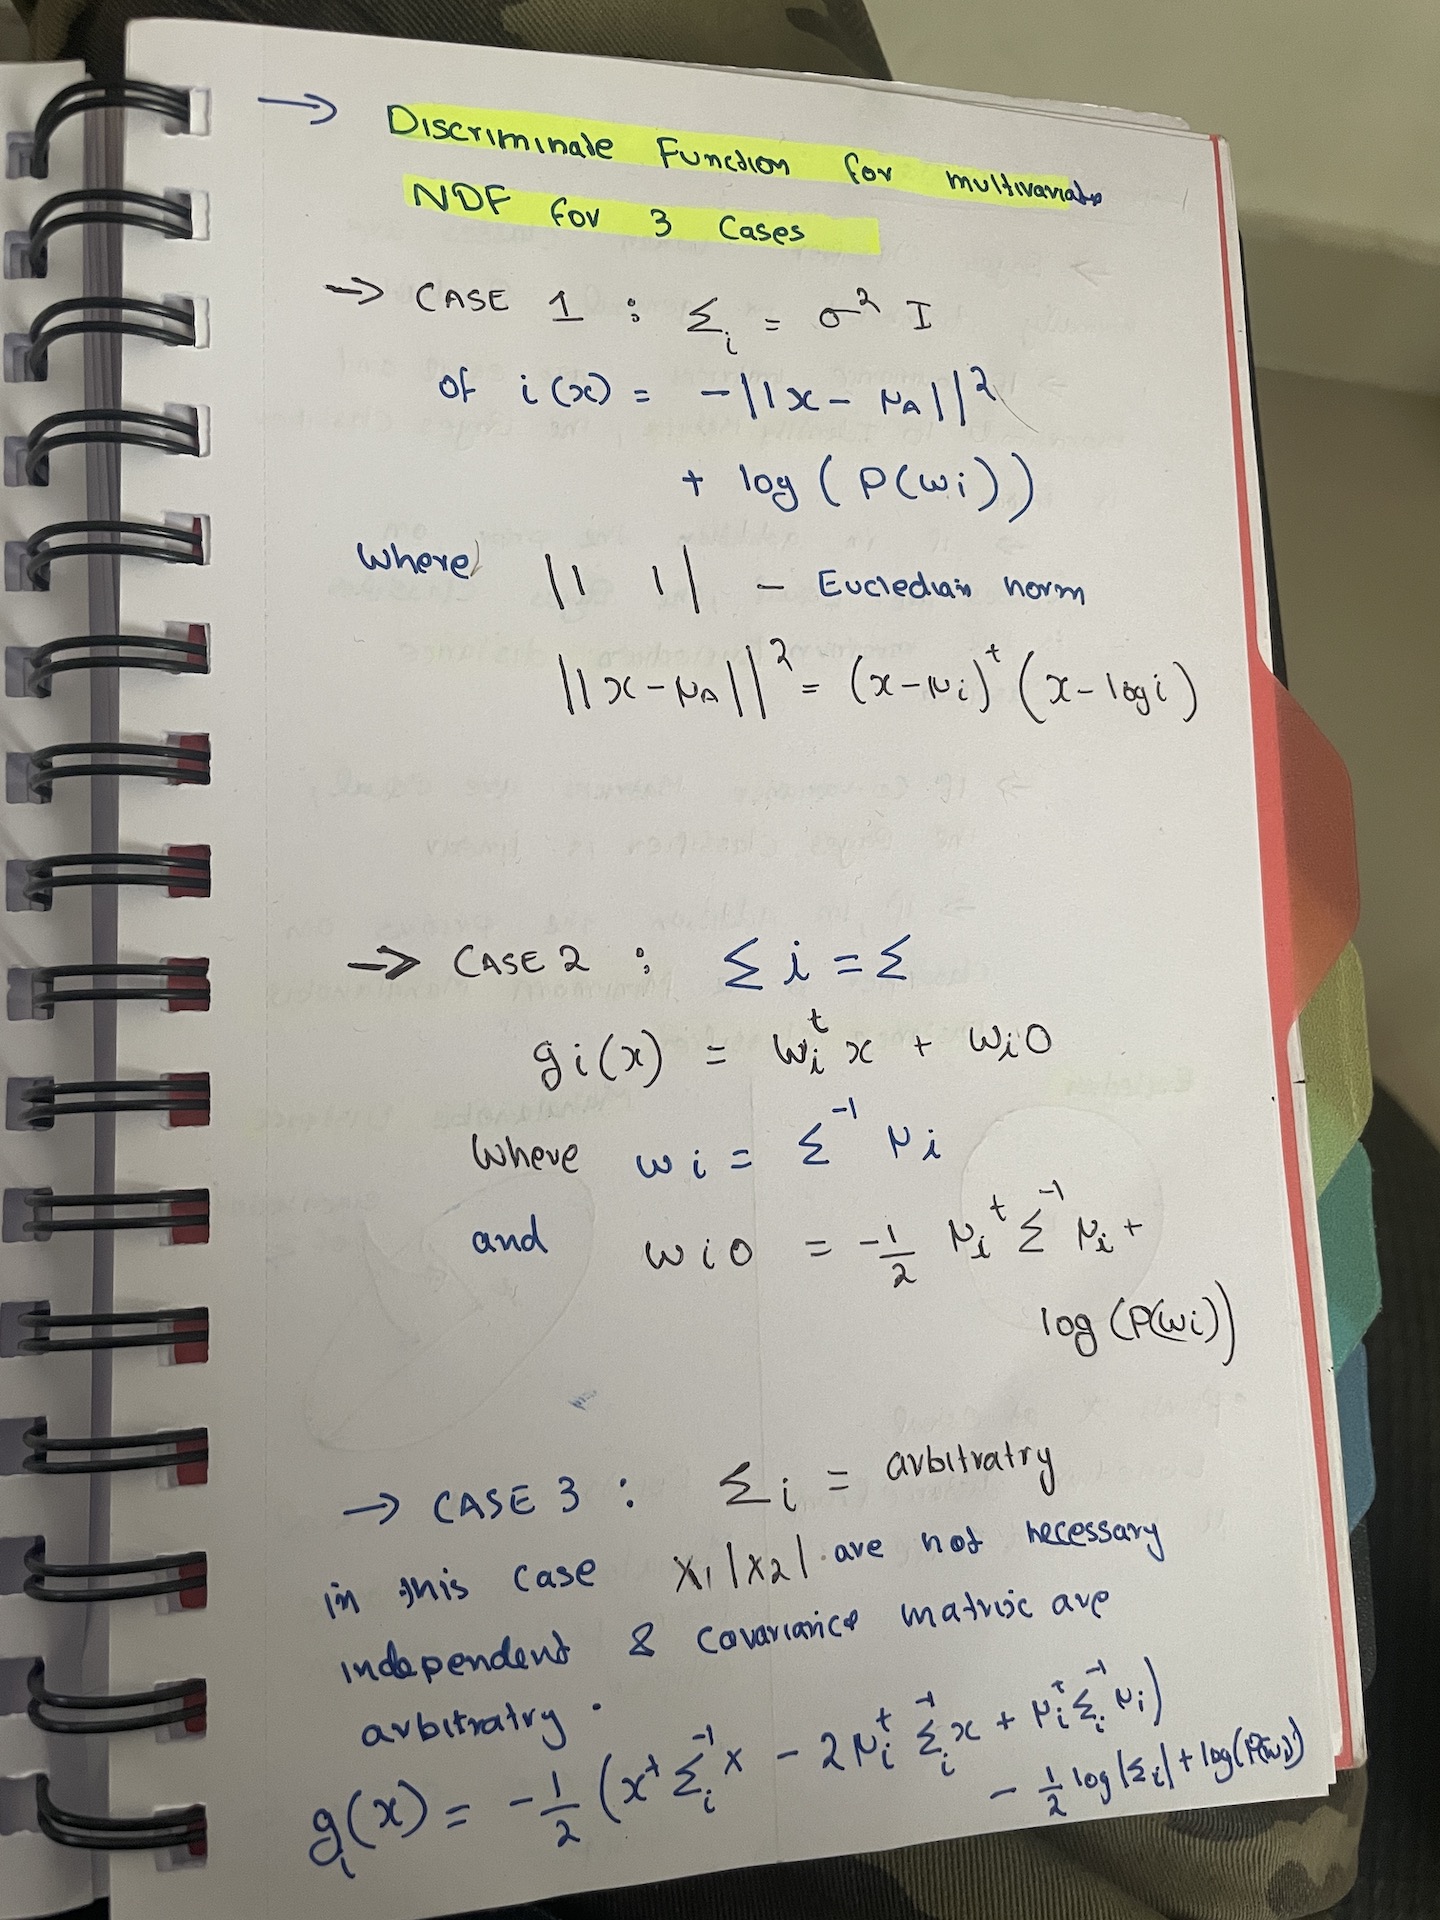 → Discriminate Function for multivariate
NDF for 3 Cases
→ CASE 1 : Σi = σ² I
of i(x) = -||x - μA||²
+ log (P(wi))
where || || - Eucledian norm
||x-μA||² = (x-μi)^t (x-logi)
→ CASE 2 : Σi = Σ
gi(x) = wi^t x + wi0
Where wi = Σ^-1 μi
and wi0 = -1/2 μi^t Σ^-1 μi +
log (P(wi))
→ CASE 3 : Σi = arbitratry
in this case X1|X2| are not necessary
independent & covariance matrix are
arbitratry.
gi(x) = -1/2 (x^t Σi^-1 x - 2μi^t Σi^-1 x + μi^t Σi^-1 μi)
- 1/2 log|Σi| + log(P(wi))